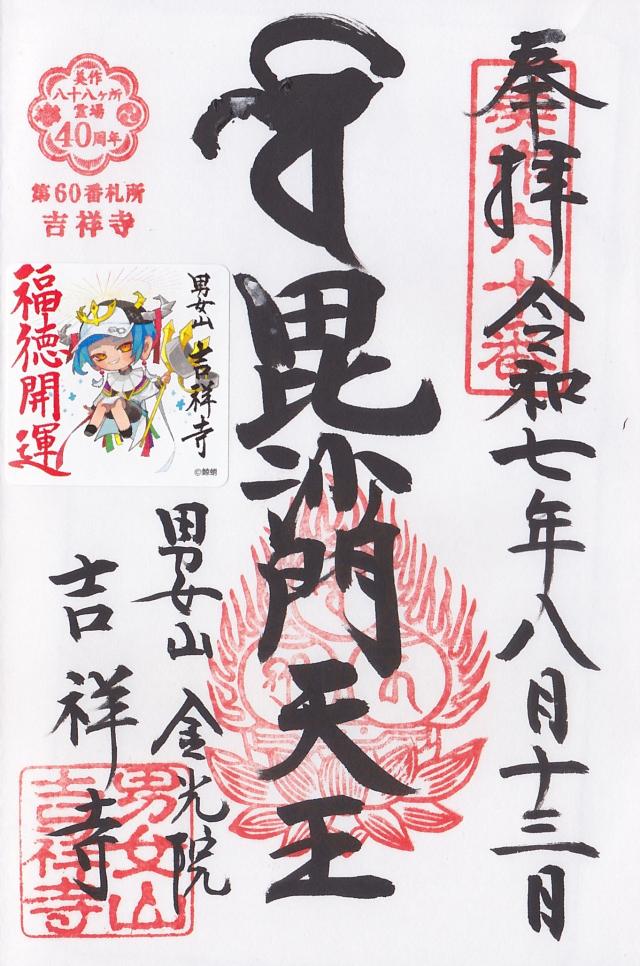 奉拝 令和七年八月十三日
美作六十番
毘沙門天王
男女山 金光院
吉祥寺
男女山
吉祥寺
美作
八十八ヶ所
霊場
40周年
第60番札所
吉祥寺
福徳開運
男女山 吉祥寺